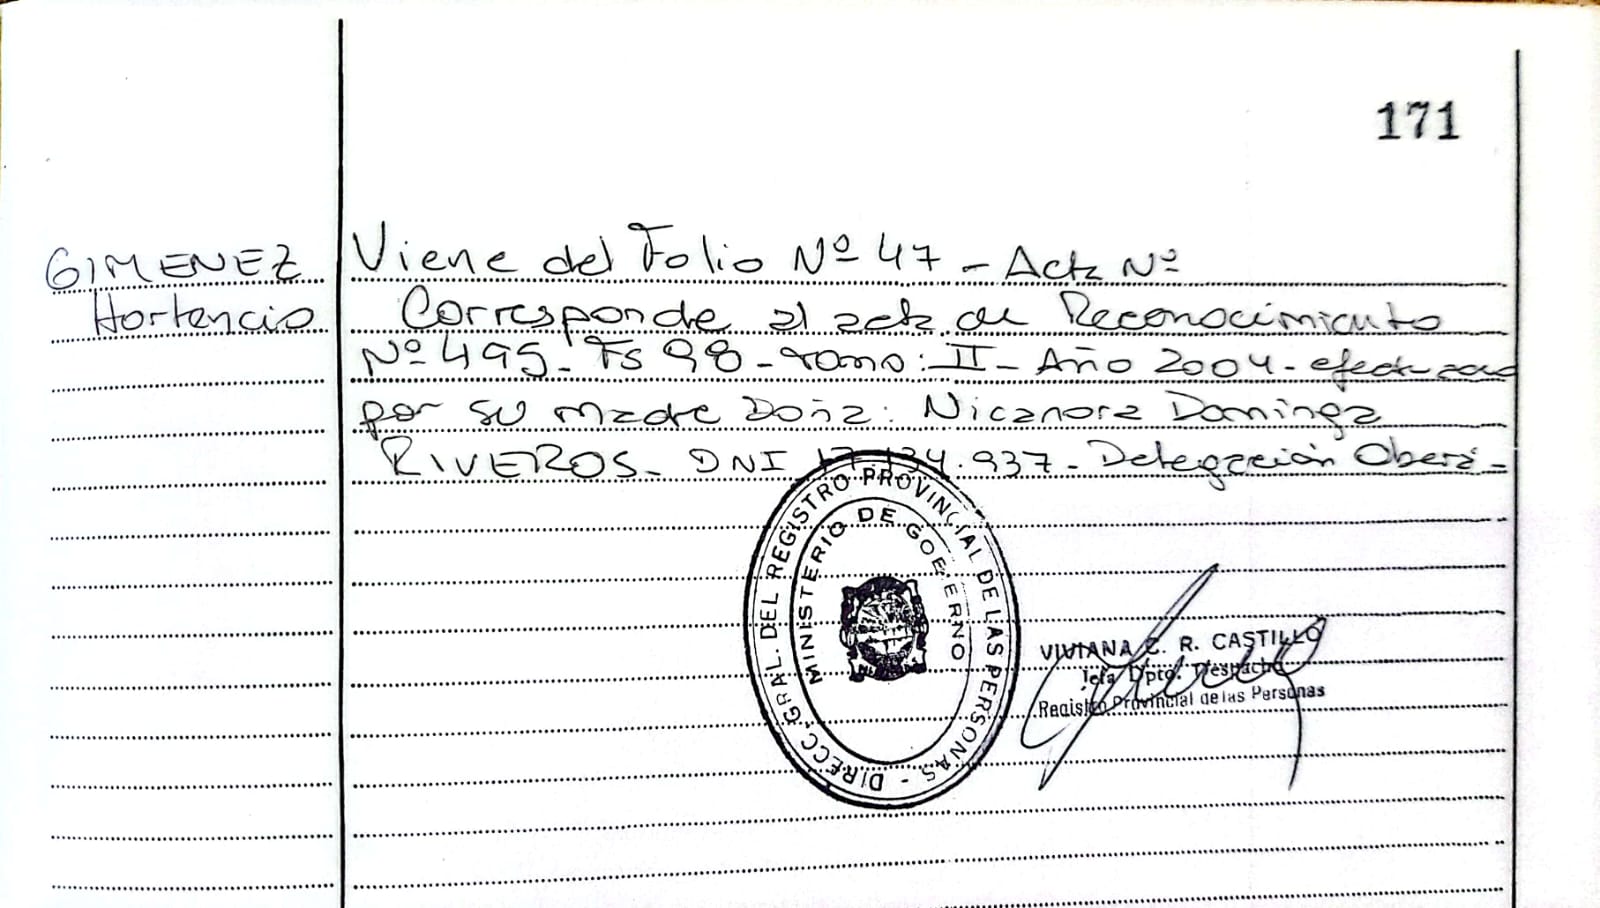 171
GIMENEZ
Hortencio
Viene del Folio Nº 47 - Acta Nº
Corresponde al acta de Reconocimiento
Nº 495- Fs 98- tomo: II- Año 2004- efectuado
por su madre Doña: Nicanora Dominga
RIVEROS- DNI 17.134.937- Delegación Oberá-
DIRECC. GRAL. DEL REGISTRO PROVINCIAL DE LAS PERSONAS -
MINISTERIO DE GOBIERNO
VIVIANA C. R. CASTILLO
Jefa Dpto. Despacho
Registro Provincial de las Personas